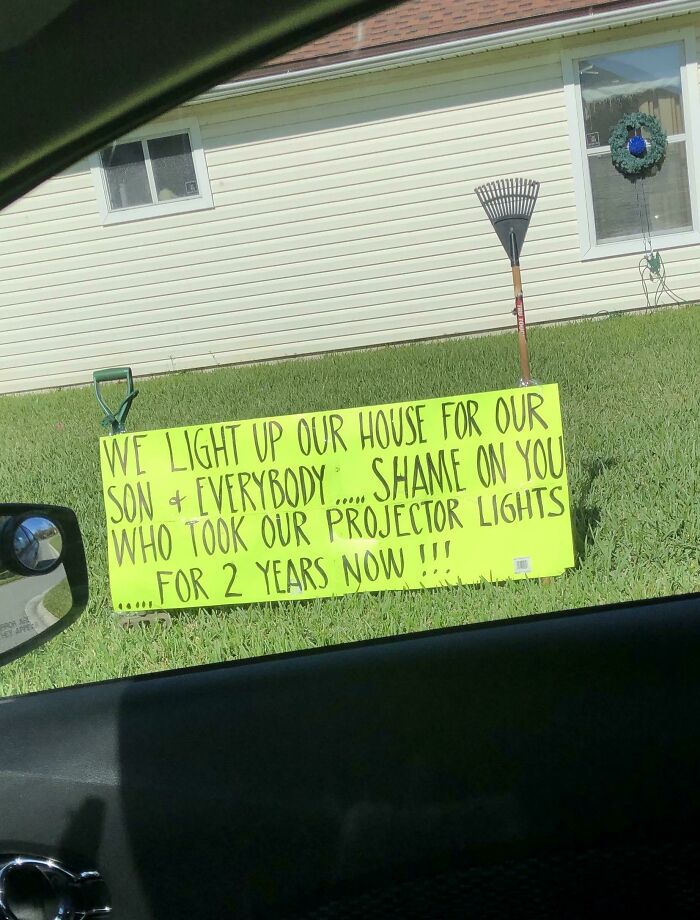 WE LIGHT UP OUR HOUSE FOR OUR
SON & EVERYBODY ..... SHAME ON YOU
WHO TOOK OUR PROJECTOR LIGHTS
..... FOR 2 YEARS NOW !!!